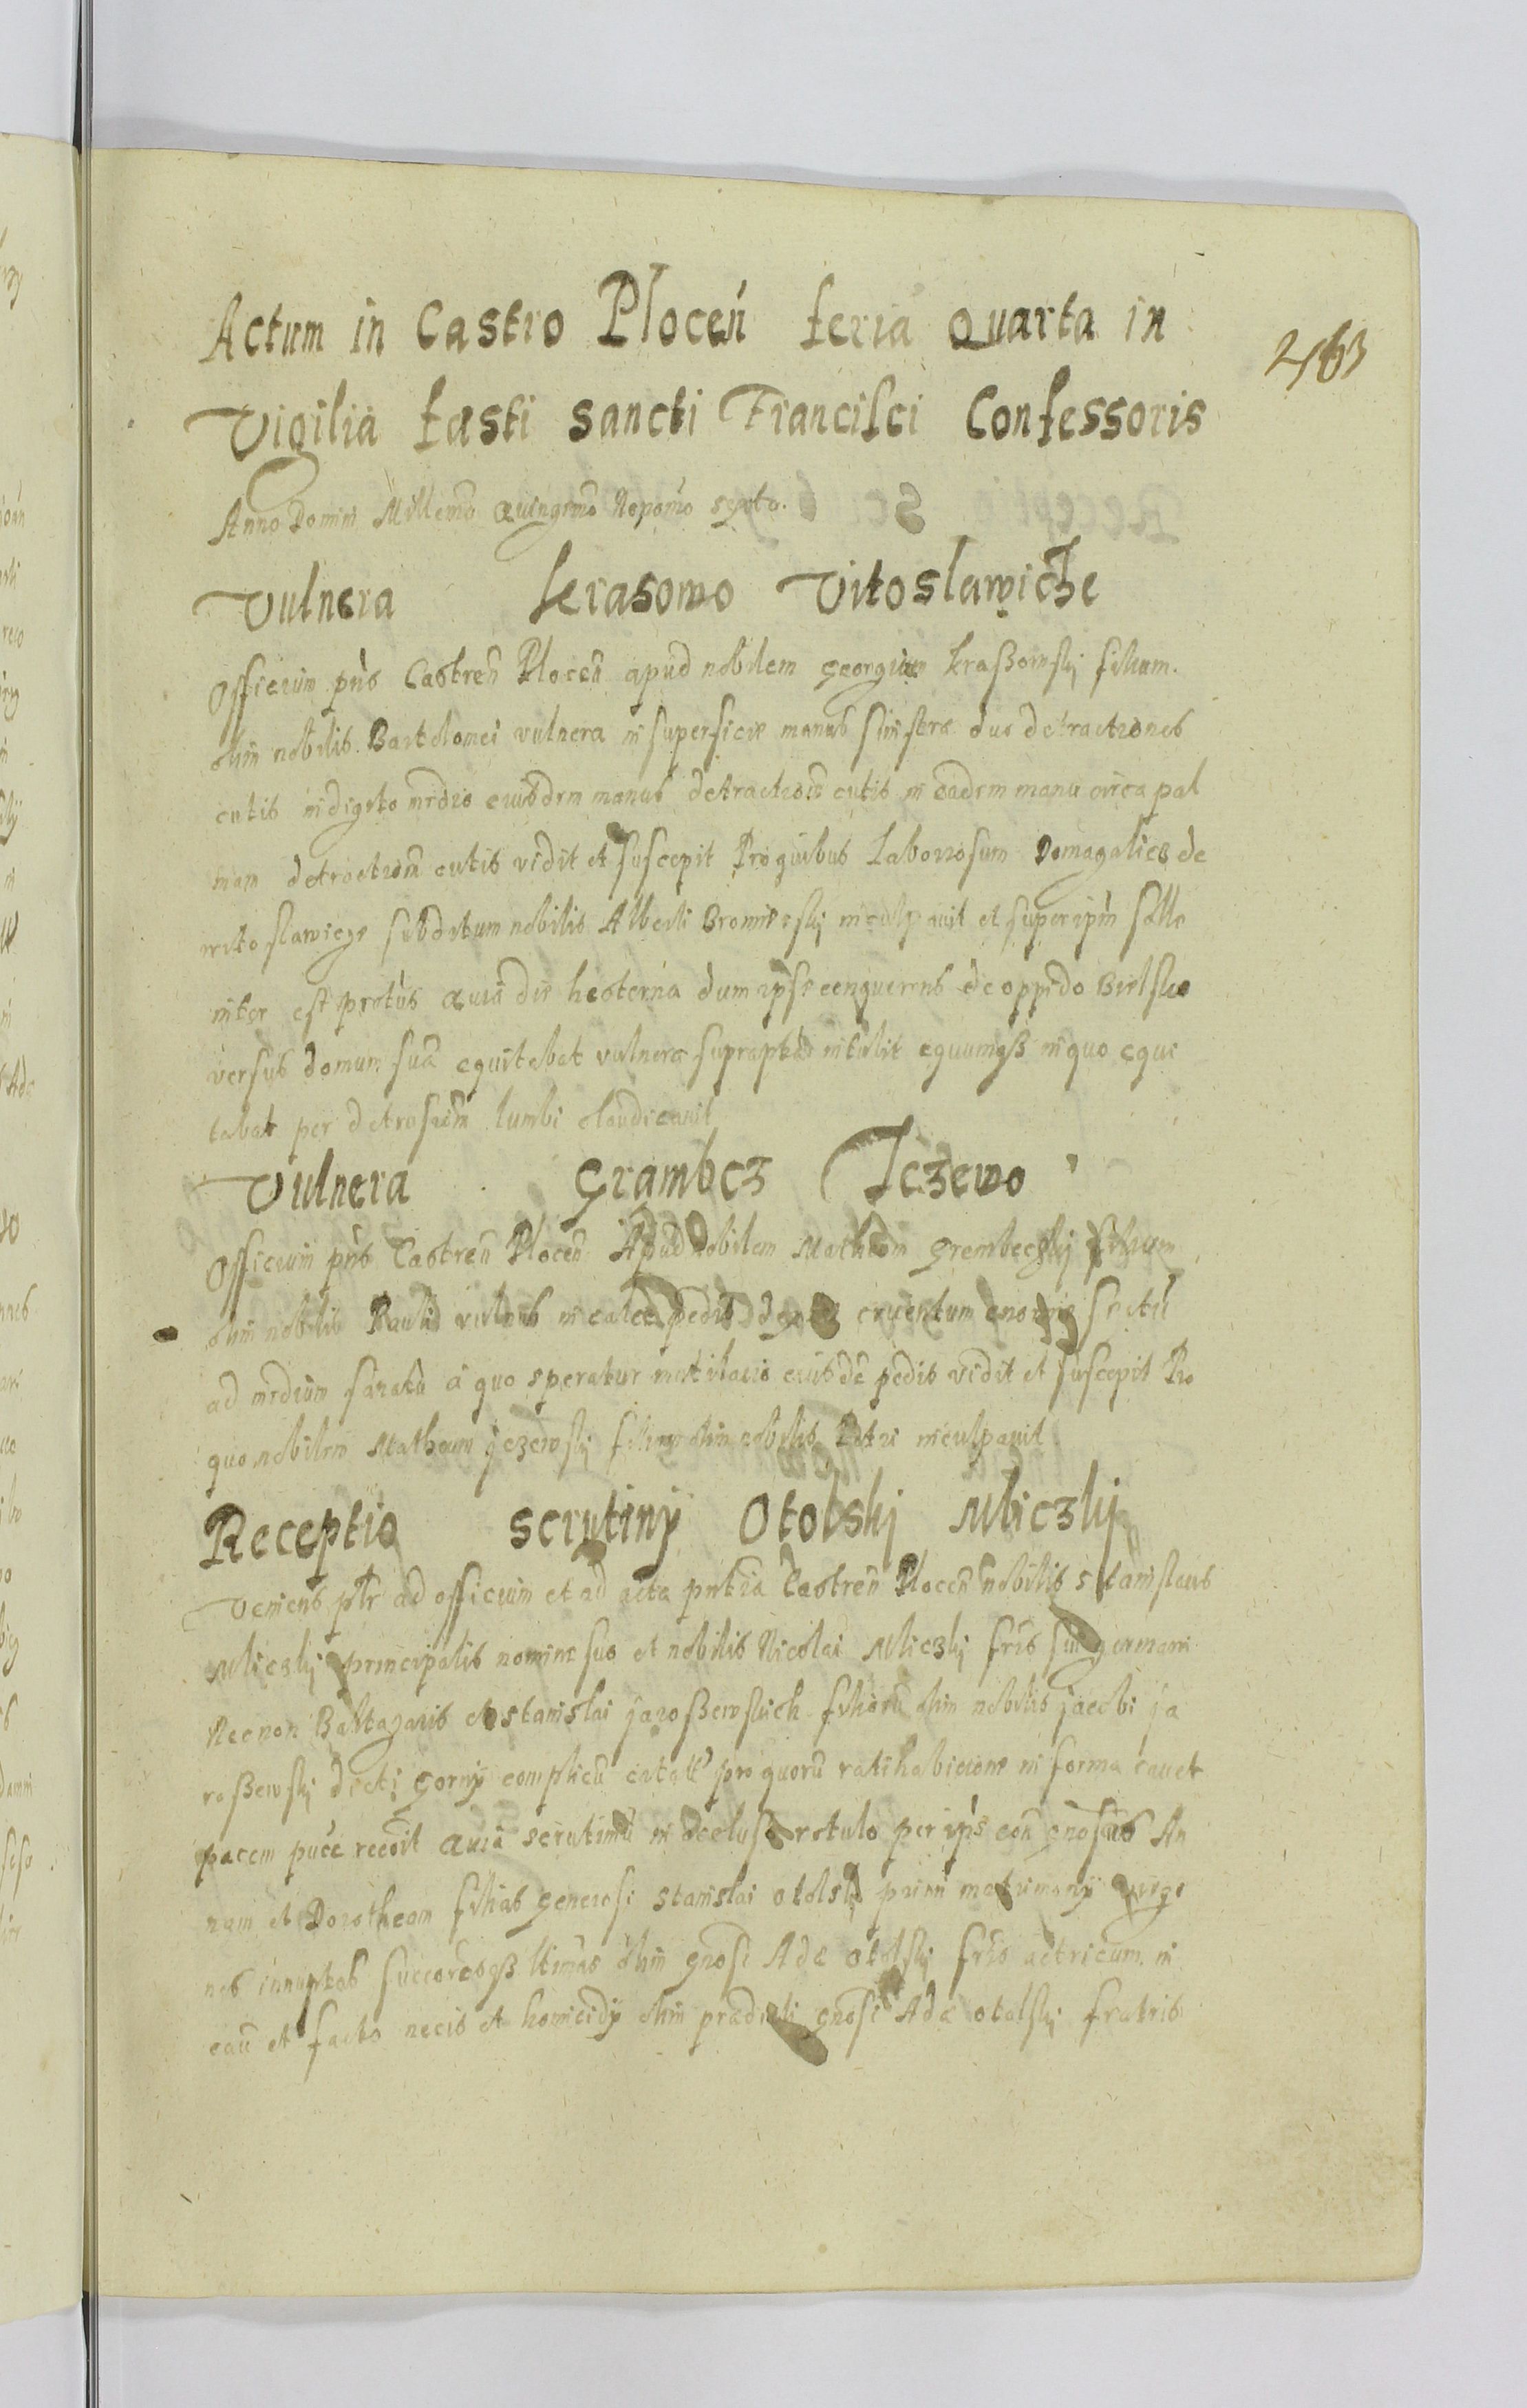 Actum in Castro Plocen̄ feria quarta in
463
Vigilia festi sancti Francisci Confessoris
Anno Domini Millemo quingemo Nonomo sexto.
Vulnera Krasowo Vitoslawicze
Officium pn̄s Castren̄ Plocen̄ apud nobilem Georgium Kraßowskj filium
olim nobilis Bartolomei vulnera in superficie manus sinistre due detractiones
cutis in digito medio eiusdem manus detractionē cutis in eadem manu circa pal
mam detractionē cutis vidit et suscepit Pro quibus Laboriosum Domagalicz de
witoslawicze subditum nobilis Alberti Bromirskj inculpavit et super ipm solle
niter est prot̄us Quia die hesterna dum ipse conquerens de oppido Bielsko
versus domum suā equitabat vulnera supraptā intulit equumqß in quo equi
tabat per lumbi claudicavit
Vulnera Grambcz Jczewo
Officium pn̄s Castren̄ Plocen̄ Apud nobilem Mathiam Grembeczkj filium
olim nobilis Pauli vulnus in calce pedis cruentum enorme sectū
ad medium a quo speratur mutilatio eiusdē pedis vidit et suscepit Pro
quo nobilem Matheum Jezewskj filium olim nobilis Petri inculpavit
Receptio scrutinÿ Otolskj Mliczkj
Veniens pl̄r ad officium et ad acta pn̄tia Castren̄ Plocen̄ nobilis Stanislaus
Mliczkj principalis nomine suo et nobilis Nicolai Mliczkj fr̄is sui germani
Necnon Baltazaris et Stanislai Jaroßewskich filiorū olim nobilis Jacobi Ja
roßewskj dicti Gornÿ complicū pro quorū ratihabicione in forma cavet
pacem recōit Quia scrutiniū in rotulo per ip̄s An
nam et Dorotheam filias generosi Stanislai Otolskj primi matrimonÿ virgi
nes innuptas succoresqß olim gn̄osi Ade Otolskj fr̄is actricum in
cāū et facto necis et homicidÿ olim predicti gn̄osi Ade Otolskj fratris